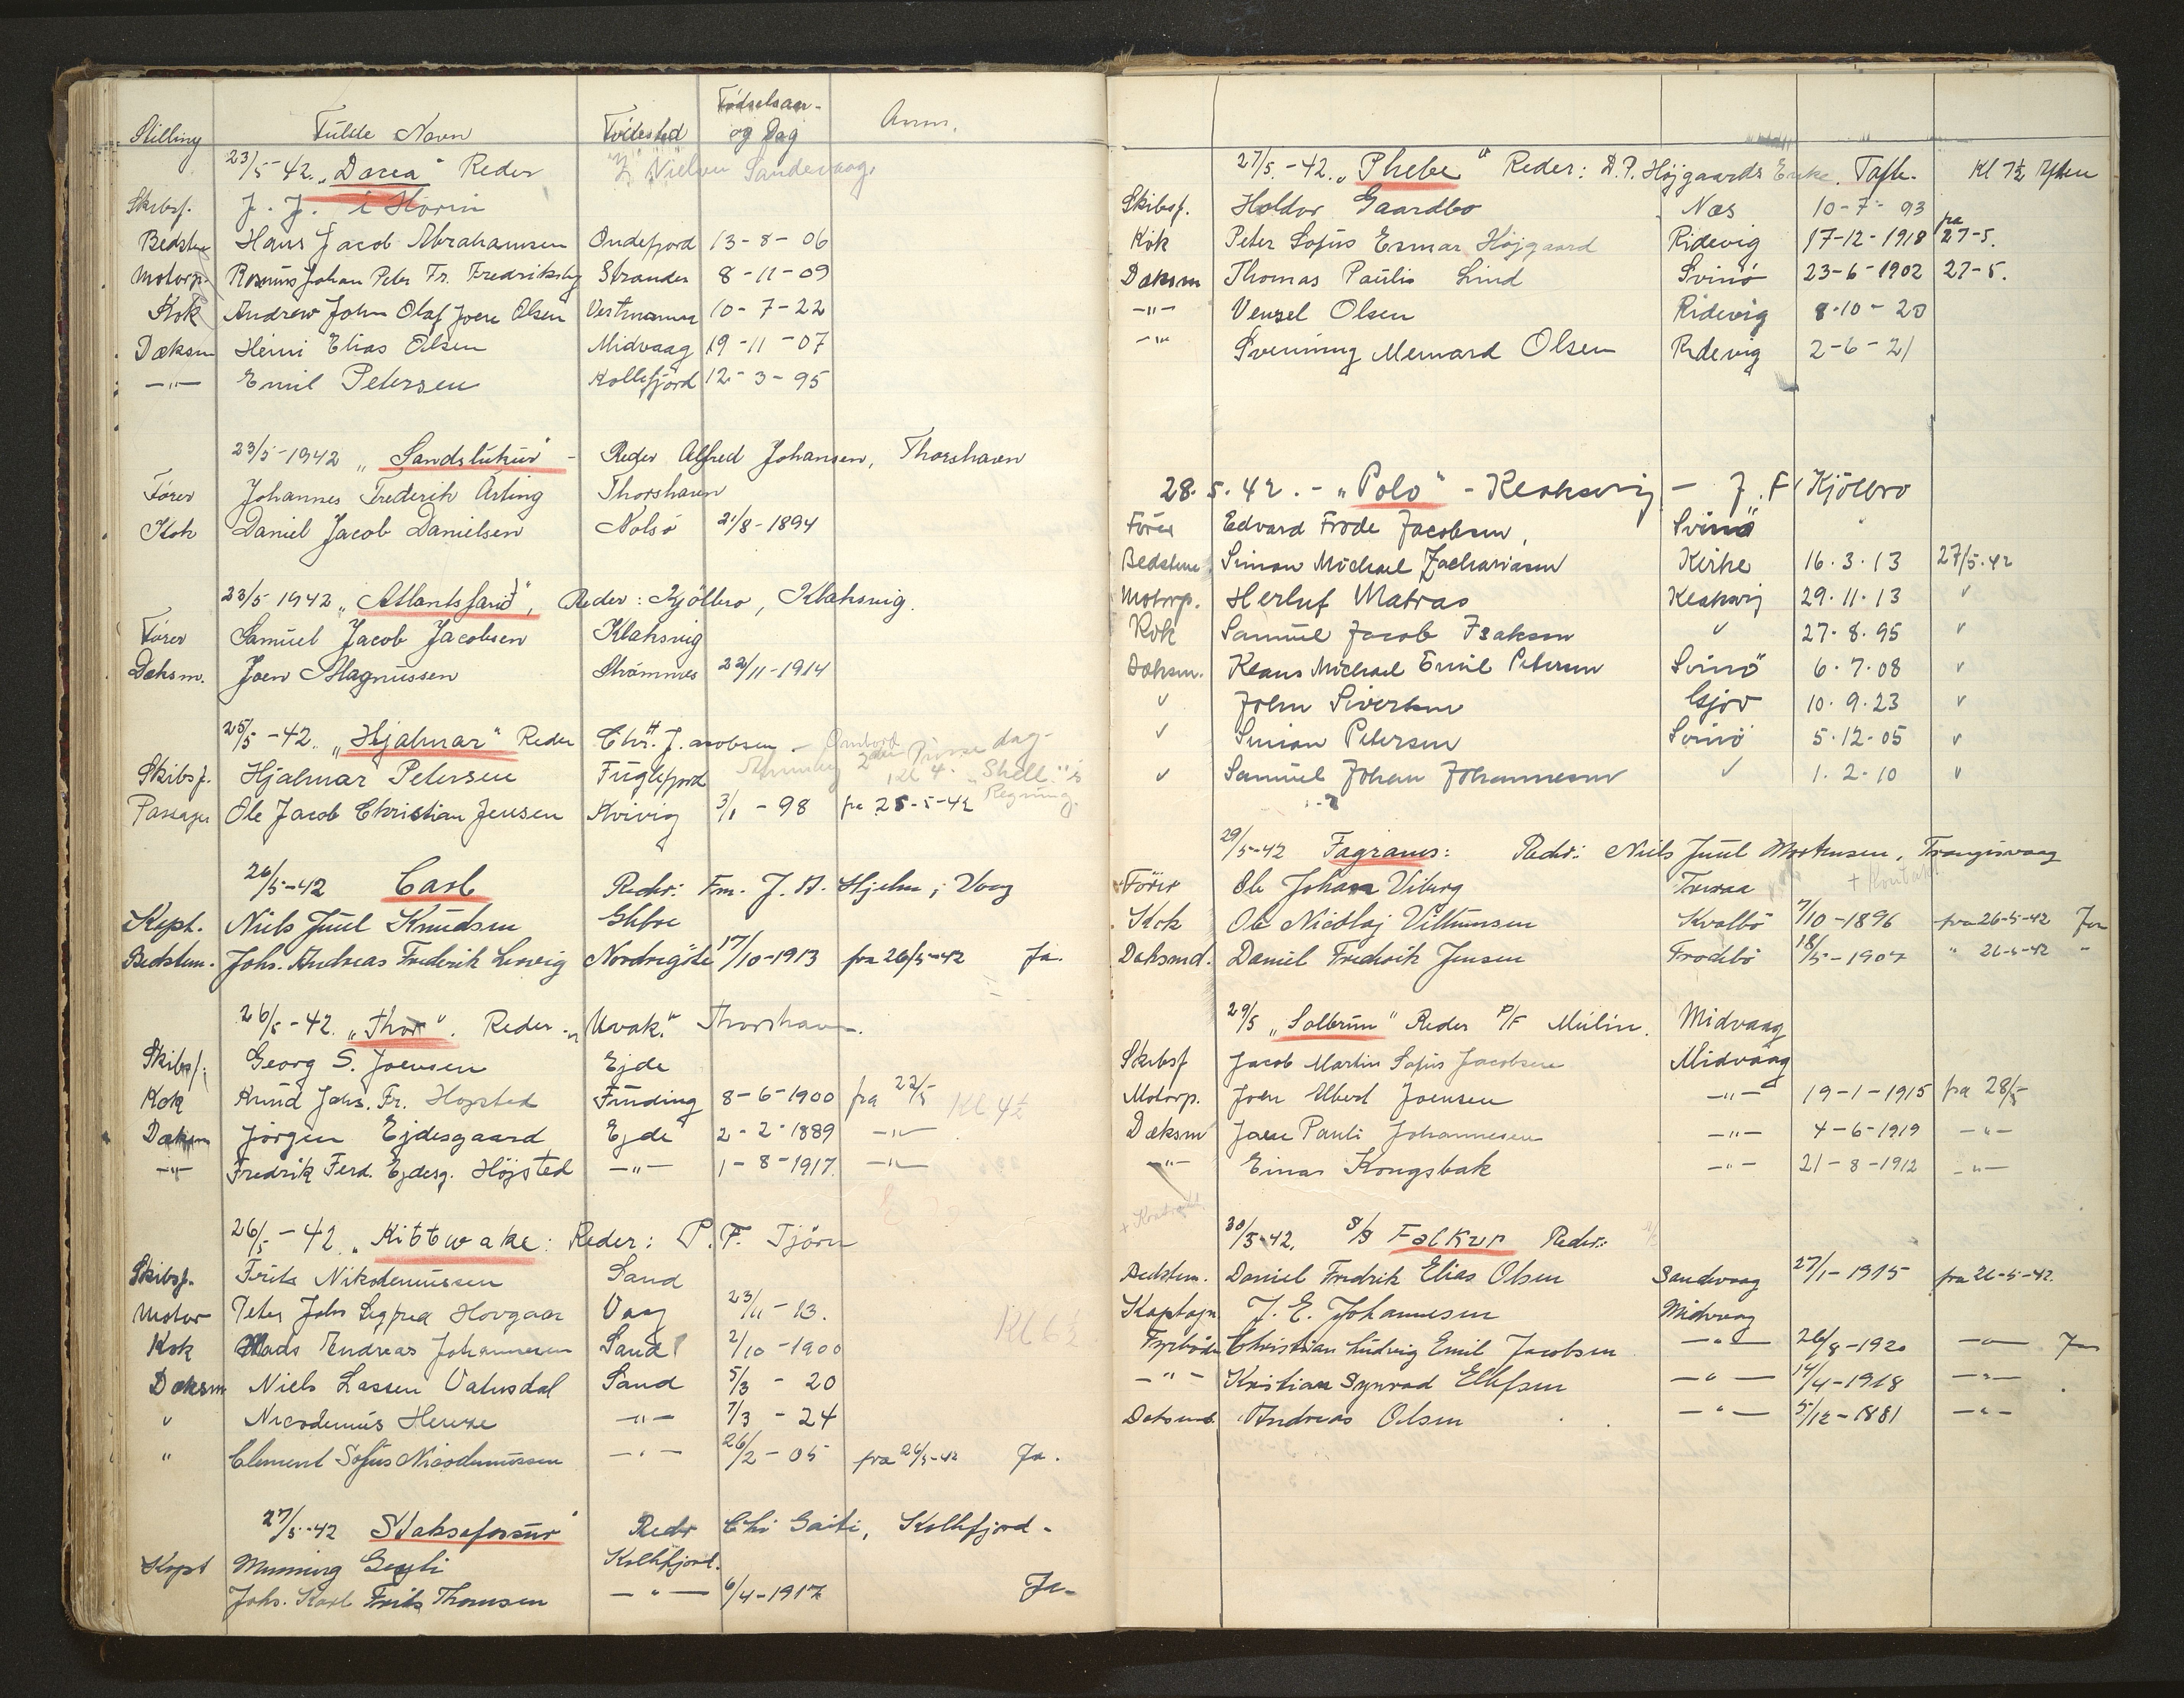 Stilling Fulde Navn Födested Födselsaar- og Dag Anm.
23/5-42. „Dacia" Reder Nielsen Sandevaag.
Skibsf. J. J. í Horni
Bedstm Hans Jacob Abrahamsen Ondefjord 13-8-06
Motorp. Rasmus Johan Peter Fr. Fredriksberg Strander 8-11-09
Kok Andrew John Olaf Joen Olsen Vestmanna 10-7-22
Dæksm Heini Elias Olsen Midvaag 19-11-07
-"- Emil Petersen Kollefjord 12-3-95
23/5-1942 „Sandslukur" - Reder Alfred Johansen, Thorshavn
Fører Johannes Frederik Arting Thorshavn
Kok Daniel Jacob Danielsen Nolsö 21/8-1894
23/5 1942 „Atlantsfarid", Reder: Kjölbro, Klaksvig.
Fører Samuel Jacob Jacobsen Klaksvig
Dæksm. Joen Magnussen Strömnes 22/11-1914
25/5-42. „Hjalmar" Reder Chr. Jacobsen - Ombord
Skibsf. Hjalmar Petersen Fuglefjord Kl 4. „Shell"s Regning.
Passager Ole Jacob Christian Jensen Kvivig 3/1-98 fra 25-5-42
26/5-42 Carl Reder: Fm. J. H. Hjelm, Vaag
Kept. Niels Juul Knudsen Ghboe
Bedstem. Johs. Andreas Frederik Lervig Nordregöte 17/10-1913 fra 26/5-42 Ja.
26/5-42. „Thor". Reder - „Kvak." Thorshavn.
Skibsf. Georg S. Joensen Ejde
Kok Knud Johs. Fr. Hojsted Funding 8-6-1900 fra 22/5 Kl 4½
Dæksm Jörgen Ejdesgaard Ejde 2-2-1889 -"-
-"- Fredrik Ferd. Ejdesg. Höjsted -"- 1-8-1917. -"-
26/5-42 „Kittwake: Reder: P. F. Tjörn
Skibsf. Frits Nikodemussen Sand
Motor Peter Johs Sigfred Hovgaar Vaag 23/11-13.
Kok Mads Andreas Johannesen Sand 2/10-1900
Dæksm Niels Lassen Vatnsdal Sand 5/3-20
" Nicodemus Henze -"- 7/3-24
" Clement Sofus Nicodemussen -"- 26/2-05 fra 26/5-42 Ja.
27/5-42 Staksafossur" Redr Chr Gaiti, Kollfjord-
Kapt Munning Kollfjord.
Johs. Karl Frits Thomsen -"- 6/4-1917 Ja-
27/5.-42. „Phebe" Reder: D.P. Höjgaards Enke. Tafte. Kl 7½ Aften
Skibsf. Holdor Gaardbo Næs 10-7-93
Kok Peter Sofus Esmar Höjgaard Ridevig 17-12-1918 fra 27-5.
Dæksm Thomas Paulis Lind Svinö 23-6-1902 27-5.
-"- Venzel Olsen Ridevig 8-10-20
-"- Svenning Mernard Olsen Ridevig 2-6-21
28.5.42. - „Polo" - Klaksvig - J. F. Kjölbro
Fører Edvard Frode Jacobsen, Svinö
Bedstem. Simon Michael Zachariasen Kirke 16.3.13 27/5-42
Motorp. Herluf Matras Klaksvig 29.11.13 "
Kok Samuel Jacob Isaksen " 27.8.95 "
Dæksm. Klaus Michael Emil Petersen Svinö 6.7.08 "
" John Sivertsen Gjov 10.9.23 "
" Simon Petersen Svinö 5.12.05 "
" Samuel Johan Johannesen " 1.2.10 "
29/5-42 Fagranes: Reder: Niels Juul Mortensen, Trangisvaag
Förer Ole Johan Viberg Tveraa + Kontrakt
Kok Ole Nicolaj Villumsen Kvalbö 7/10-1896 fra 26-5-42 Ja
Dæksmd. Daniel Fredrik Jensen Frodebö 18/5-1907 " 26-5-42 "
29/5 „Solbrun" Reder P/F Mulin. Midvaag
Skibsf Jacob Martin Sofus Jacobsen Midvaag
Motorp. Joen Albert Joensen -"- 19-1-1915 fra 28/5
Dæksm Joen Pauli Johannesen -"- 4-6-1919 -"-
-"- Einar Kongsbak -"- 21-8-1912 -"-
+ Kontrakt
30/5-42. S/S Falkur Reder:
Bedstem. Daniel Fredrik Elias Olsen Sandevaag 27/1-1915 fra 26-5-42.
Kaptajn J. E. Johannesen Midvaag
Fyrböder Christian Ludvig Emil Jacobsen -"- 26/8-1920 -"- Ja
-"- Kristian Synvad Ellefsen -"- 14/4-1918 -"-
Dæksmd Andreas Olsen -"- 5/12-1881 -"-